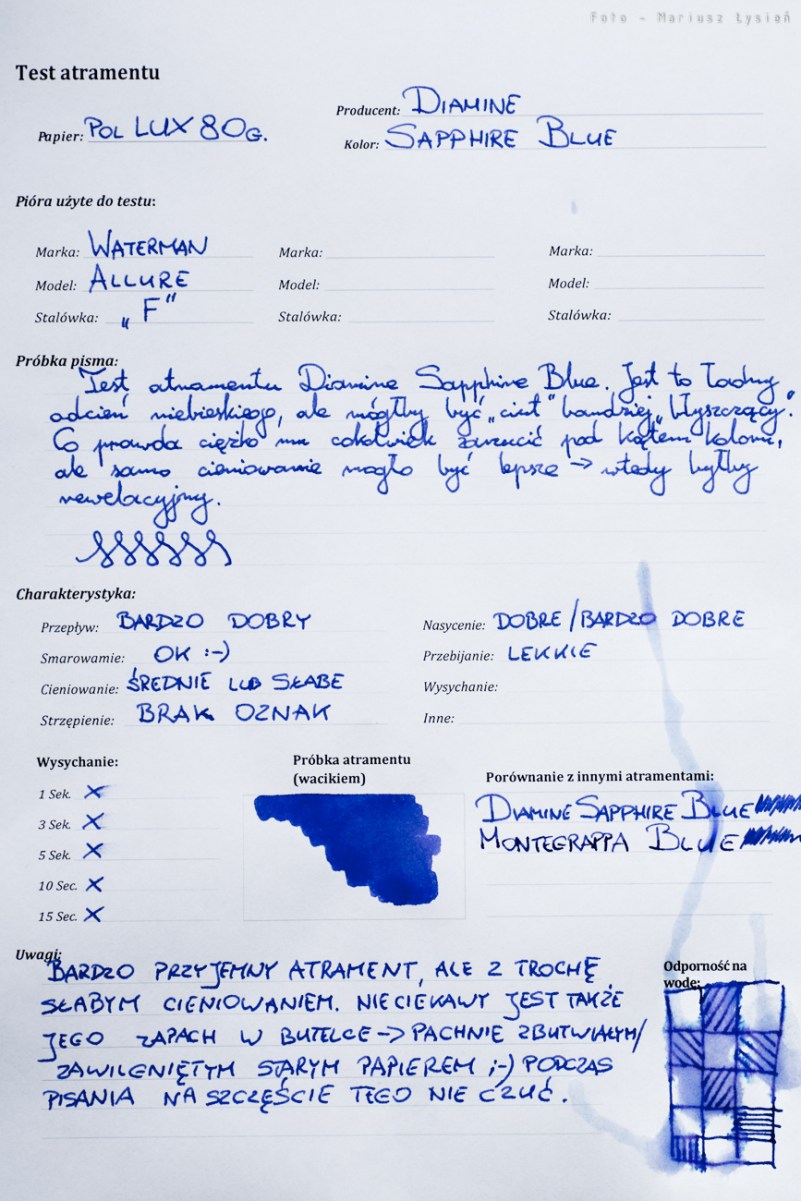 Foto - Mariusz Łysień
Test atramentu
Producent: DIAMINE
Papier: POL LUX 80G.
Kolor: SAPPHIRE BLUE
Pióra użyte do testu:
Marka: WATERMAN Marka: Marka:
Model: ALLURE Model: Model:
Stalówka: „F” Stalówka: Stalówka:
Próbka pisma:
Test atramentu Diamine Sapphire Blue. Jest to ładny
odcień niebieskiego, ale mógłby być „ciut” bardziej „błyszczący”.
Co prawda ciężko mu cokolwiek zarzucić pod kątem koloru,
ale samo cieniowanie mogło być lepsze → wtedy byłby
rewelacyjny.
Charakterystyka:
Przepływ: BARDZO DOBRY Nasycenie: DOBRE/BARDZO DOBRE
Smarowamie: OK :-) Przebijanie: LEKKIE
Cieniowanie: ŚREDNIE LUB SŁABE Wysychanie:
Strzępienie: BRAK OZNAK Inne:
Wysychanie:
1 Sek. X
3 Sek. X
5 Sek. X
10 Sec. X
15 Sec. X
Próbka atramentu
(wacikiem)
Porównanie z innymi atramentami:
DIAMINE SAPPHIRE BLUE
MONTEGRAPPA BLUE
Uwagi:
BARDZO PRZYJEMNY ATRAMENT, ALE Z TROCHĘ
SŁABYM CIENIOWANIEM. NIECIEKAWY JEST TAKŻE
JEGO ZAPACH W BUTELCE -> PACHNIE ZBUTWIAŁYM/
ZAWILGNIĘTYM STARYM PAPIEREM ;-) PODCZAS
PISANIA NA SZCZĘŚCIE TEGO NIE CZUĆ.
Odporność na
wodę: